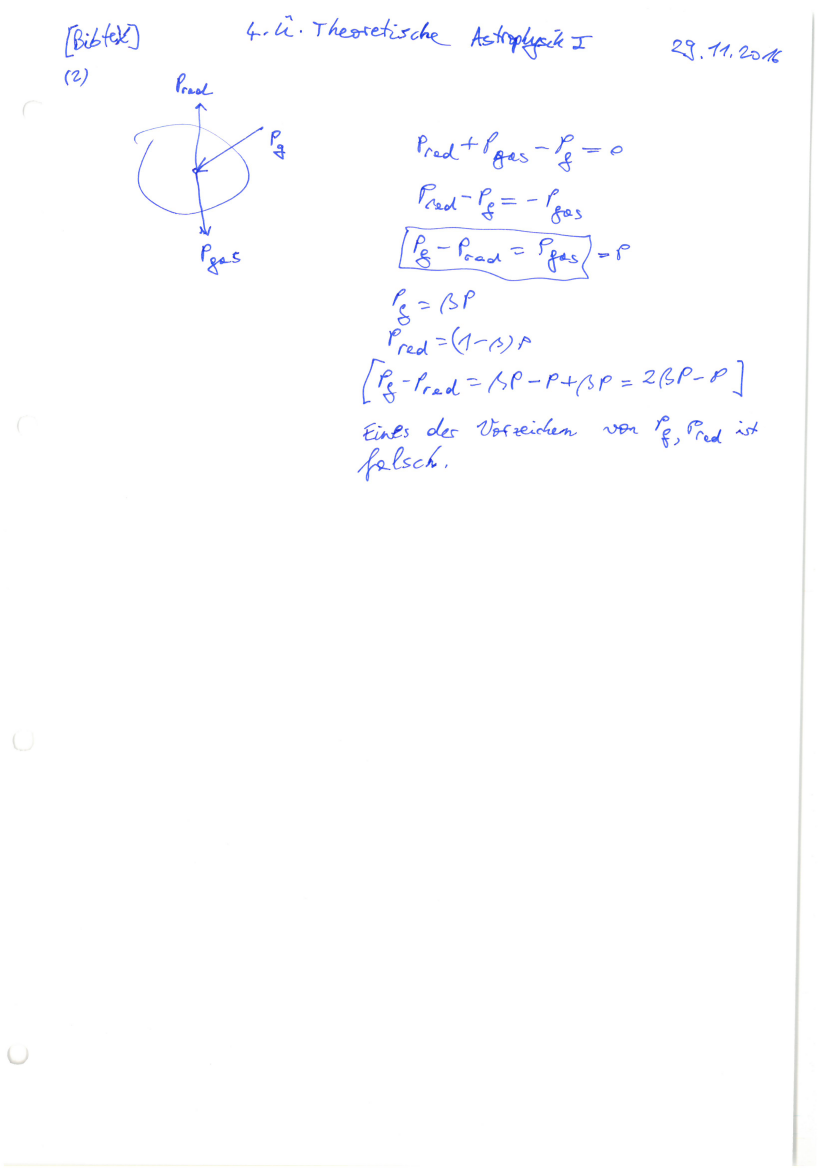 [Bibtex] 4. Ü. Theoretische Astrophysik I 29.11.2016
(2)
P_rad
P_g
P_gas
P_rad + P_gas - P_g = 0
P_rad - P_g = - P_gas
P_g - P_rad = P_gas = P
P_g = βP
P_rad = (1-β)P
[P_g - P_rad = βP - P + βP = 2βP - P]
Eines der Vorzeichen von P_g, P_rad ist
falsch.